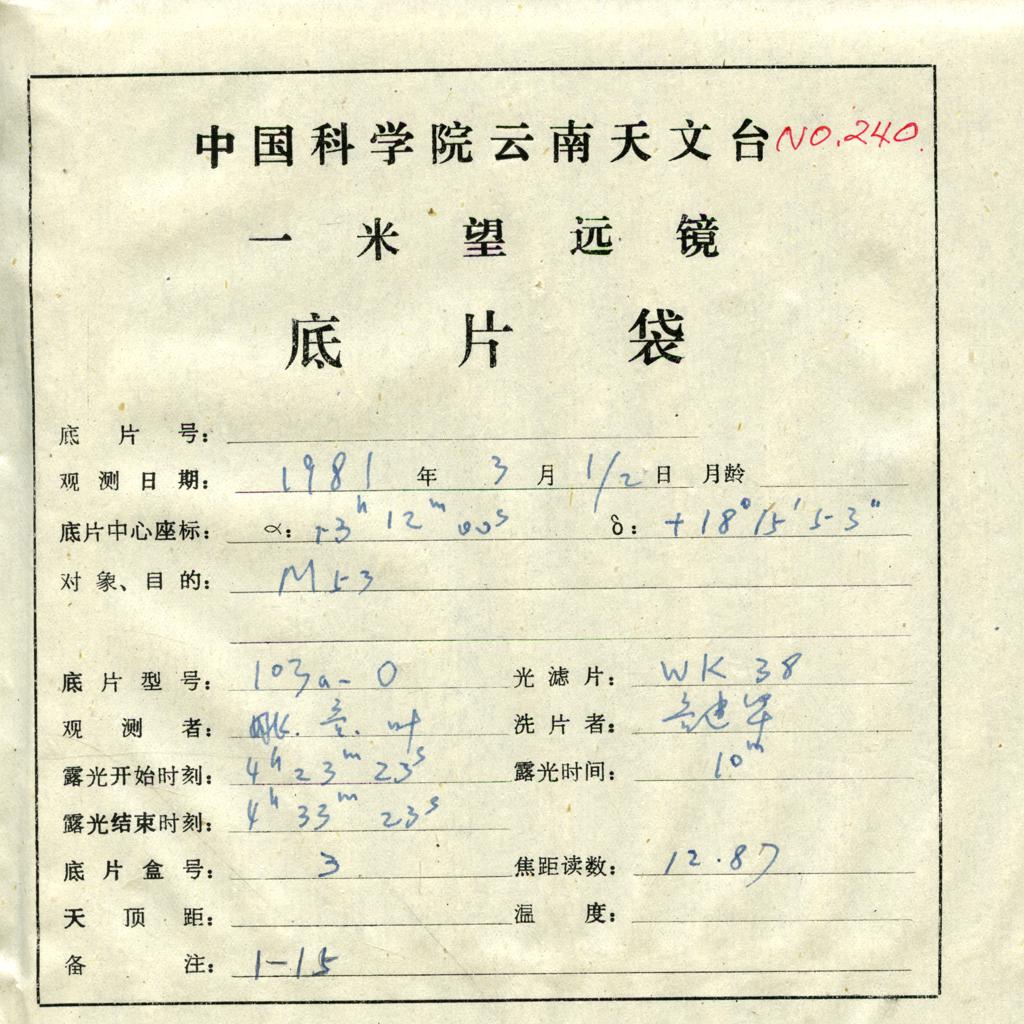 中国科学院云南天文台 NO.240.
一米望远镜
底片袋
底片号：
观测日期： 1981 年 3 月 1/2 日 月龄
底片中心座标： α： 13h 12m 00s δ： +18° 15′ 53″
对象、目的： M53
底片型号： 103a-O 光滤片： WK 38
观测者： 洗片者：
露光开始时刻： 4h 23m 23s 露光时间： 10m
露光结束时刻： 4h 33m 23s
底片盒号： 3 焦距读数： 12.87
天顶距： 温度：
备注： 1-15